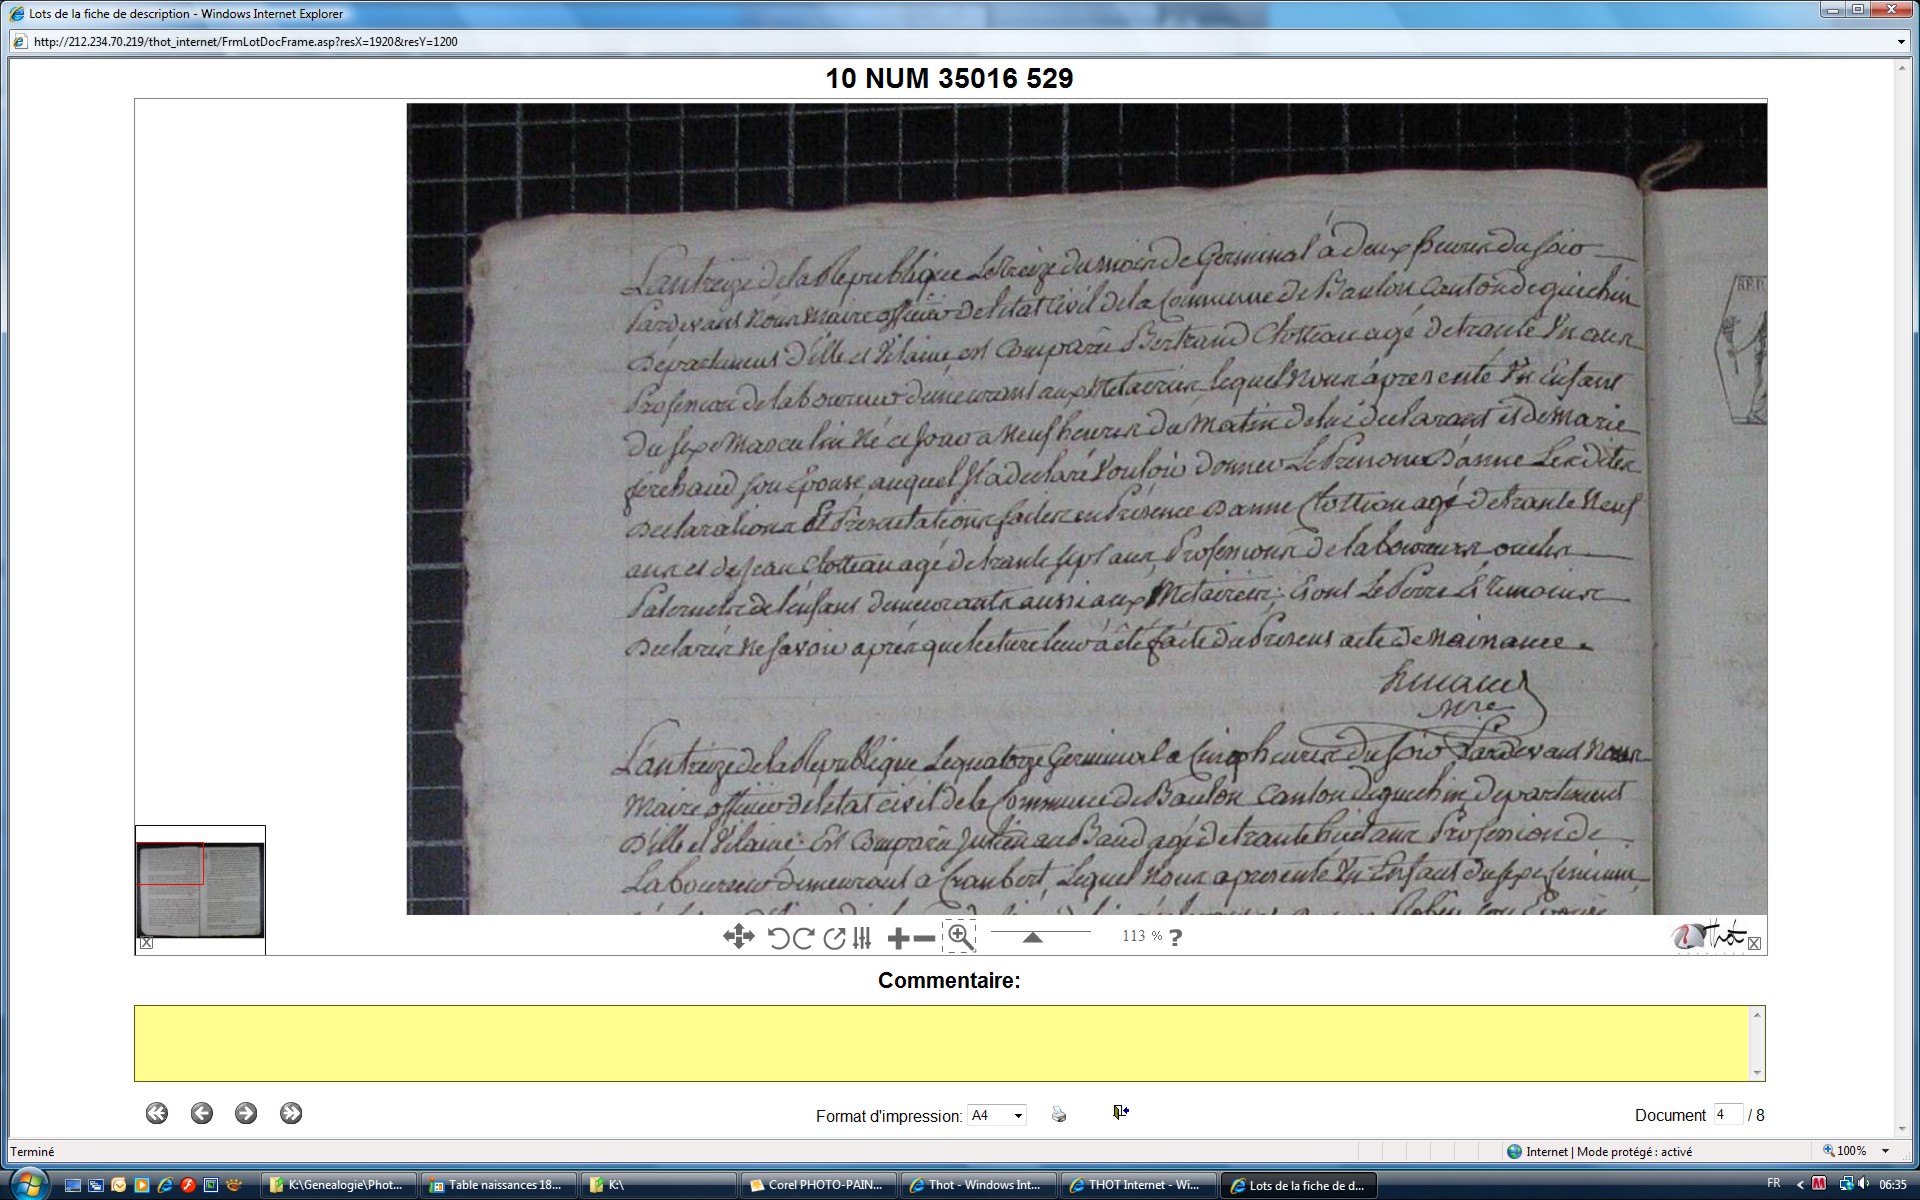 Lots de la fiche de description - Windows Internet Explorer
http://212.234.70.219/thot_internet/FrmLotDocFrame.asp?resX=1920&resY=1200
10 NUM 35016 529
L'an treize de la Republique Le treize du mois de Germinal à deux heures du soir
Pardevant Nous Maire officier de letat Civil de la Commune de Baulon Canton de guichin
Departement d'ille et Vilaine est Comparu Bertrand Clotteau agé de trante Un ans
Profession de laboureur demeurant aux Metairies lequel Nous a presenté Un Enfant
du sexe Masculin Né ce jour a Neuf heures du Matin de lui declarant et de Marie
ferchaud son Epouse auquel Il a declaré Vouloir donner Le Prenom D'anne Les dites
Declarations Et Presentations faites en Présence D'anne Clotteau agé de trante Neuf
ans et de Jean Clotteau agé de trante sept ans, Professions de laboureurs oncles
Paternels de l'enfant demeurants aussi aux Metairies; Et ont Le Perre Et temoins
Declarés Ne savoir aprés que lecture leur à été faite du Present acte de Naissance.
mre
L'an treize de la Republique Le quatorze Germinal a Cinq heures du soir Pardevant Nous
Maire officier de letat civil de la Commune de Baulon Canton de guichin, departement
D'ille et Vilaine: Est Comparu Julien au Baud agé de trante huit ans Profession de
Laboureur demeurant a Lequel Nous a presenté Un Enfant du sexe feminin,
REP
Thot
113 % ?
Commentaire:
Format d'impression: A4
Document 4 / 8
Terminé
Internet | Mode protégé : activé
100%
K:\Genealogie\Phot...
Table naissances 18...
K:\
Corel PHOTO-PAIN...
Thot - Windows Int...
THOT Internet - Wi...
Lots de la fiche de d...
FR
06:35